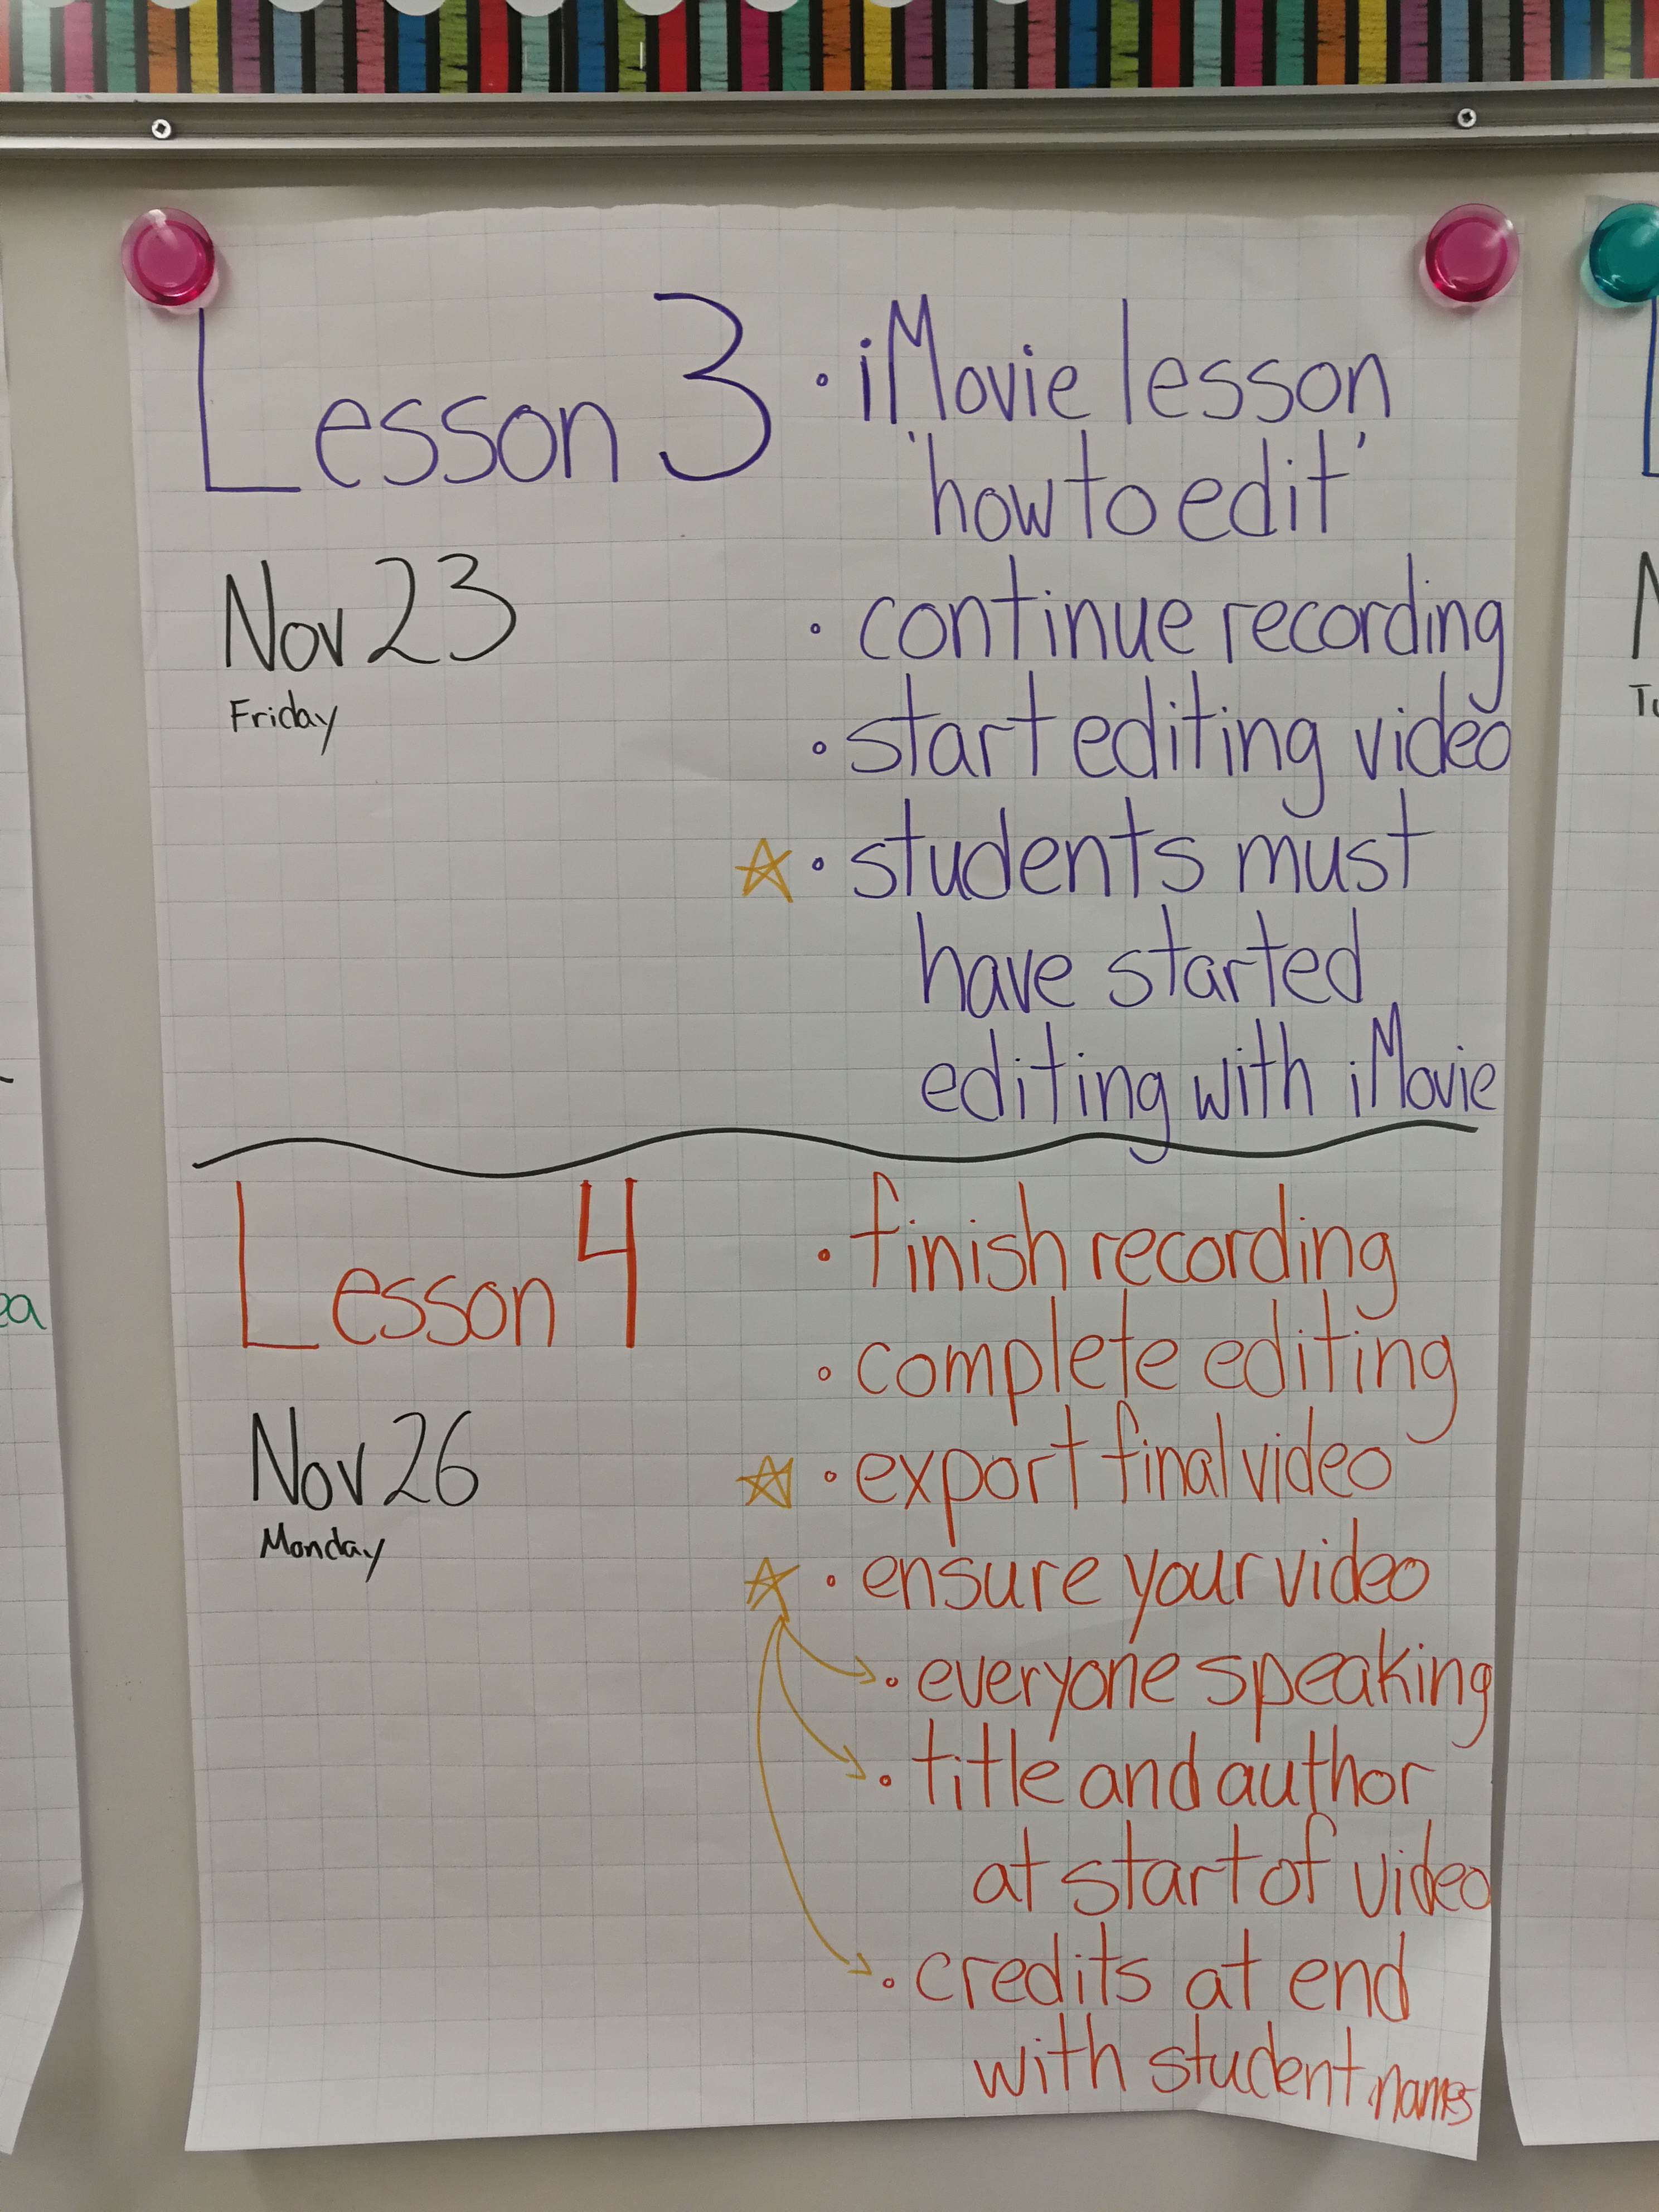 Lesson 3
• iMovie lesson
'how to edit'
Nov 23
Friday
• continue recording
• start editing video
☆ • students must
have started
editing with iMovie
Lesson 4
• finish recording
• complete editing
Nov 26
Monday
☆ • export final video
☆ • ensure your video
• everyone speaking
• title and author
at start of video
• credits at end
with student names
ea
N
Tu